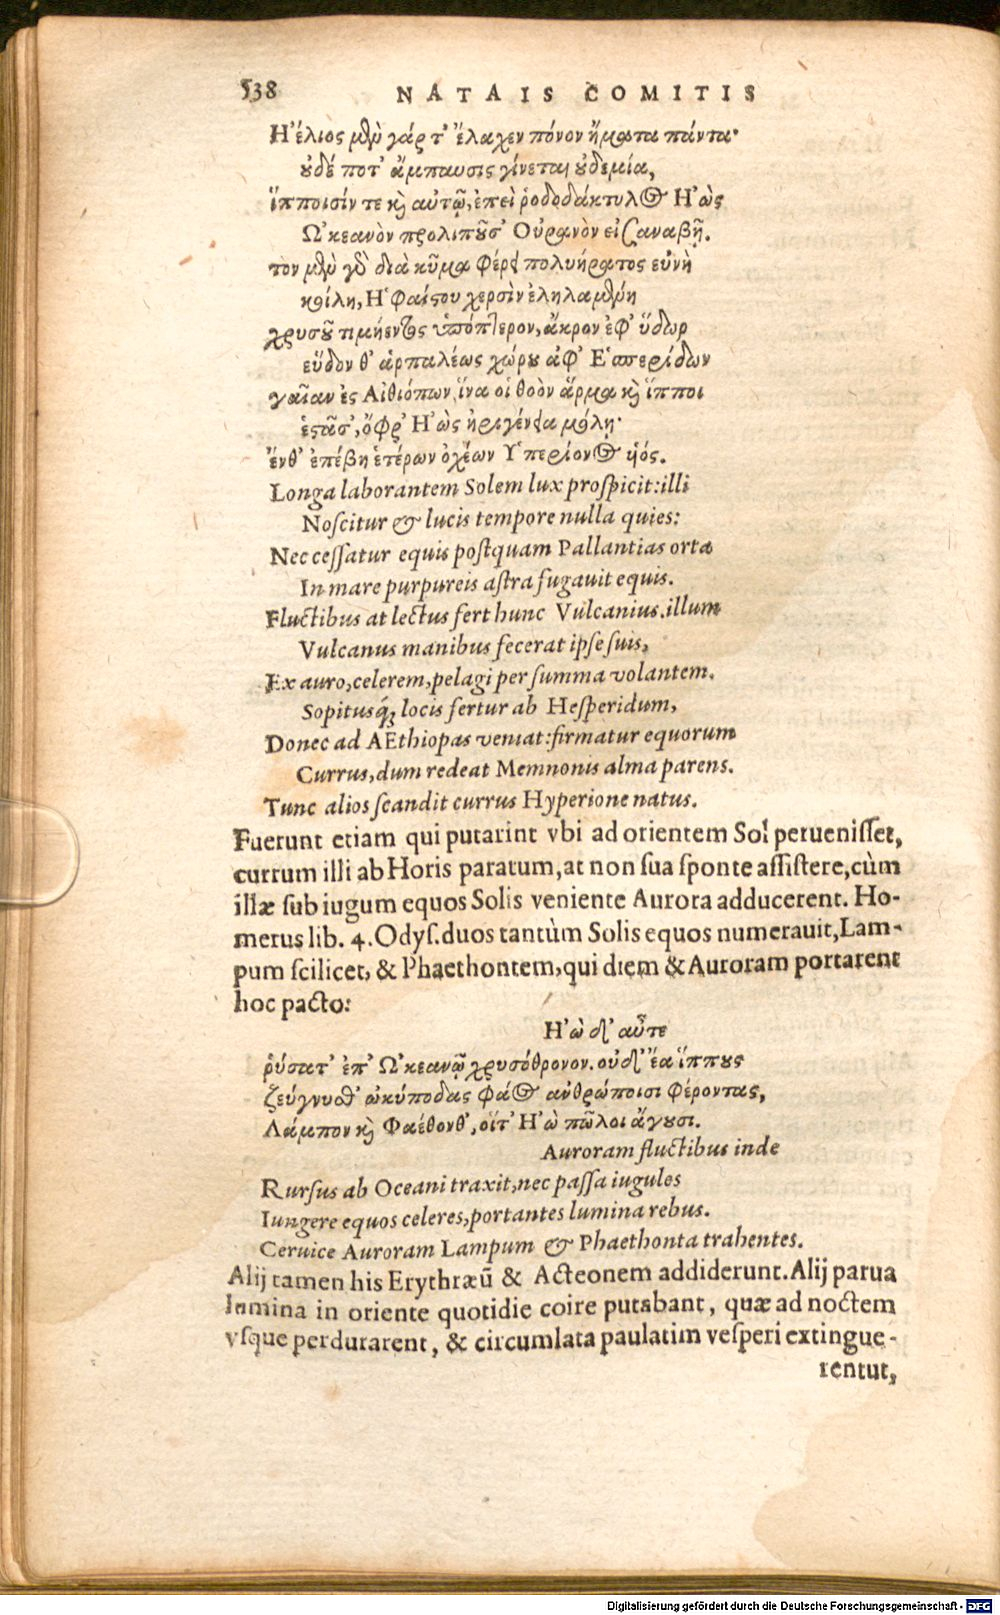 538 NATAIS COMITIS
Ἠέλιος μὲν γάρ τ' ἔλαχεν πόνον ἤματα πάντα·
ȣδέ ποτ' ἄμπαυσις γίνεται ȣδεμία,
ἵπποισίν τε καὶ αὐτῷ, ἐπεὶ ῥοδοδάκτυλος Ἠὼς
Ὠκεανὸν προλιπȣ͂σ' Οὐρανὸν εἰσαναβῇ.
τον μὲν γδ διὰ κῦμα φέρει πολυήρατος εὐνὴ
κοίλη, Ἡφαίστου χερσὶν ἐληλαμένη
χρυσȣ͂ τιμήεντος ὑπόπτερον, ἄκρον ἐφ' ὕδωρ
εὕδον θ' ἁρπαλέως χώρȣ ἀφ' Ἑσπερίδων
γαῖαν ἐς Αἰθιόπων, ἵνα οἱ θοὸν ἅρμα καὶ ἵπποι
ἑστᾶσ', ὄφρ' Ἠὼς ἠριγένεια μόλῃ·
ἔνθ' ἐπέβη ἑτέρων ὀχέων Ὑπερίονος ἡός.
Longa laborantem Solem lux prospicit: illi
Noscitur & lucis tempore nulla quies:
Nec cessatur equis postquam Pallantias orta
In mare purpureis astra fugauit equis.
Fluctibus at lectus fert hunc Vulcanius. illum
Vulcanus manibus fecerat ipse suis,
Ex auro, celerem, pelagi per summa volantem.
Sopitusq́; locis fertur ab Hesperidum,
Donec ad AEthiopas veniat: firmatur equorum
Currus, dum redeat Memnonis alma parens.
Tunc alios scandit currus Hyperione natus.
Fuerunt etiam qui putarint vbi ad orientem Sol peruenisset,
currum illi ab Horis paratum, at non sua sponte assistere, cùm
illæ sub iugum equos Solis veniente Aurora adducerent. Ho-
merus lib. 4. Odys. duos tantùm Solis equos numerauit, Lam-
pum scilicet, & Phaethontem, qui diem & Auroram portarent
hoc pacto:
Ἠὼ δ' αὖτε
ῥύσατ' ἐπ' Ὠκεανῷ χρυσόθρονον. οὐδ' ἔα ἵππȣς
ζεύγνυσθ' ὠκύποδας φάος ἀνθρώποισι φέροντας,
Λάμπον καὶ Φαέθονθ', οἵτ' Ἠὼ πῶλοι ἄγȣσι.
Auroram fluctibus inde
Rursus ab Oceani traxit, nec passa iugules
Iungere equos celeres, portantes lumina rebus.
Ceruice Auroram Lampum & Phaethonta trahentes.
Alij tamen his Erythræū & Acteonem addiderunt. Alij parua
lumina in oriente quotidie coire putabant, quæ ad noctem
vsque perdurarent, & circumlata paulatim vesperi extingue-
rentur,
Digitalisierung gefördert durch die Deutsche Forschungsgemeinschaft - DFG